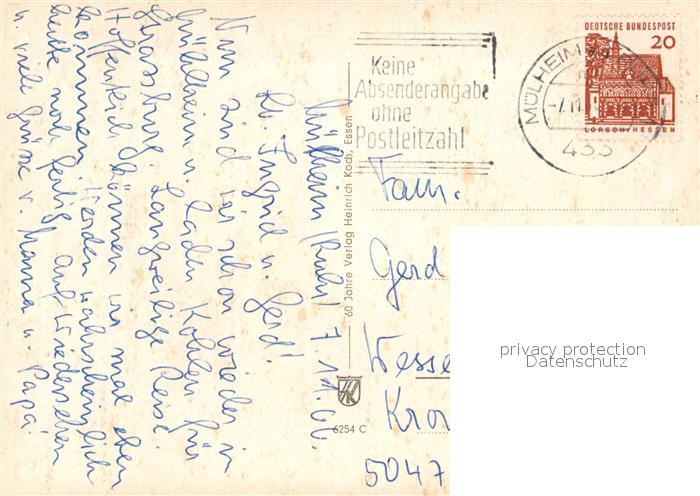 Mülheim/Ruhr 7.11.66.
Lb. Ingrid u. Gerd!
Nun sind wir schon wieder in
Mühlheim u. laden Kohlen für
Strassburg. Langweilige Reise.
Hoffentlich können wir mal eben
kommen. Werden wahrscheinlich
heute noch fertig. Auf Wiedersehen
u. viele Grüsse v. Mama u. Papa
60 Jahre Verlag Heinrich Koch, Essen
6254 C
Keine
Absenderangabe
ohne
Postleitzahl
MÜLHEIM
-7.11.
433
DEUTSCHE BUNDESPOST
20
LORSCH/HESSEN
Fam.
Gerd
Wesse
Kro
5047
privacy protection
Datenschutz